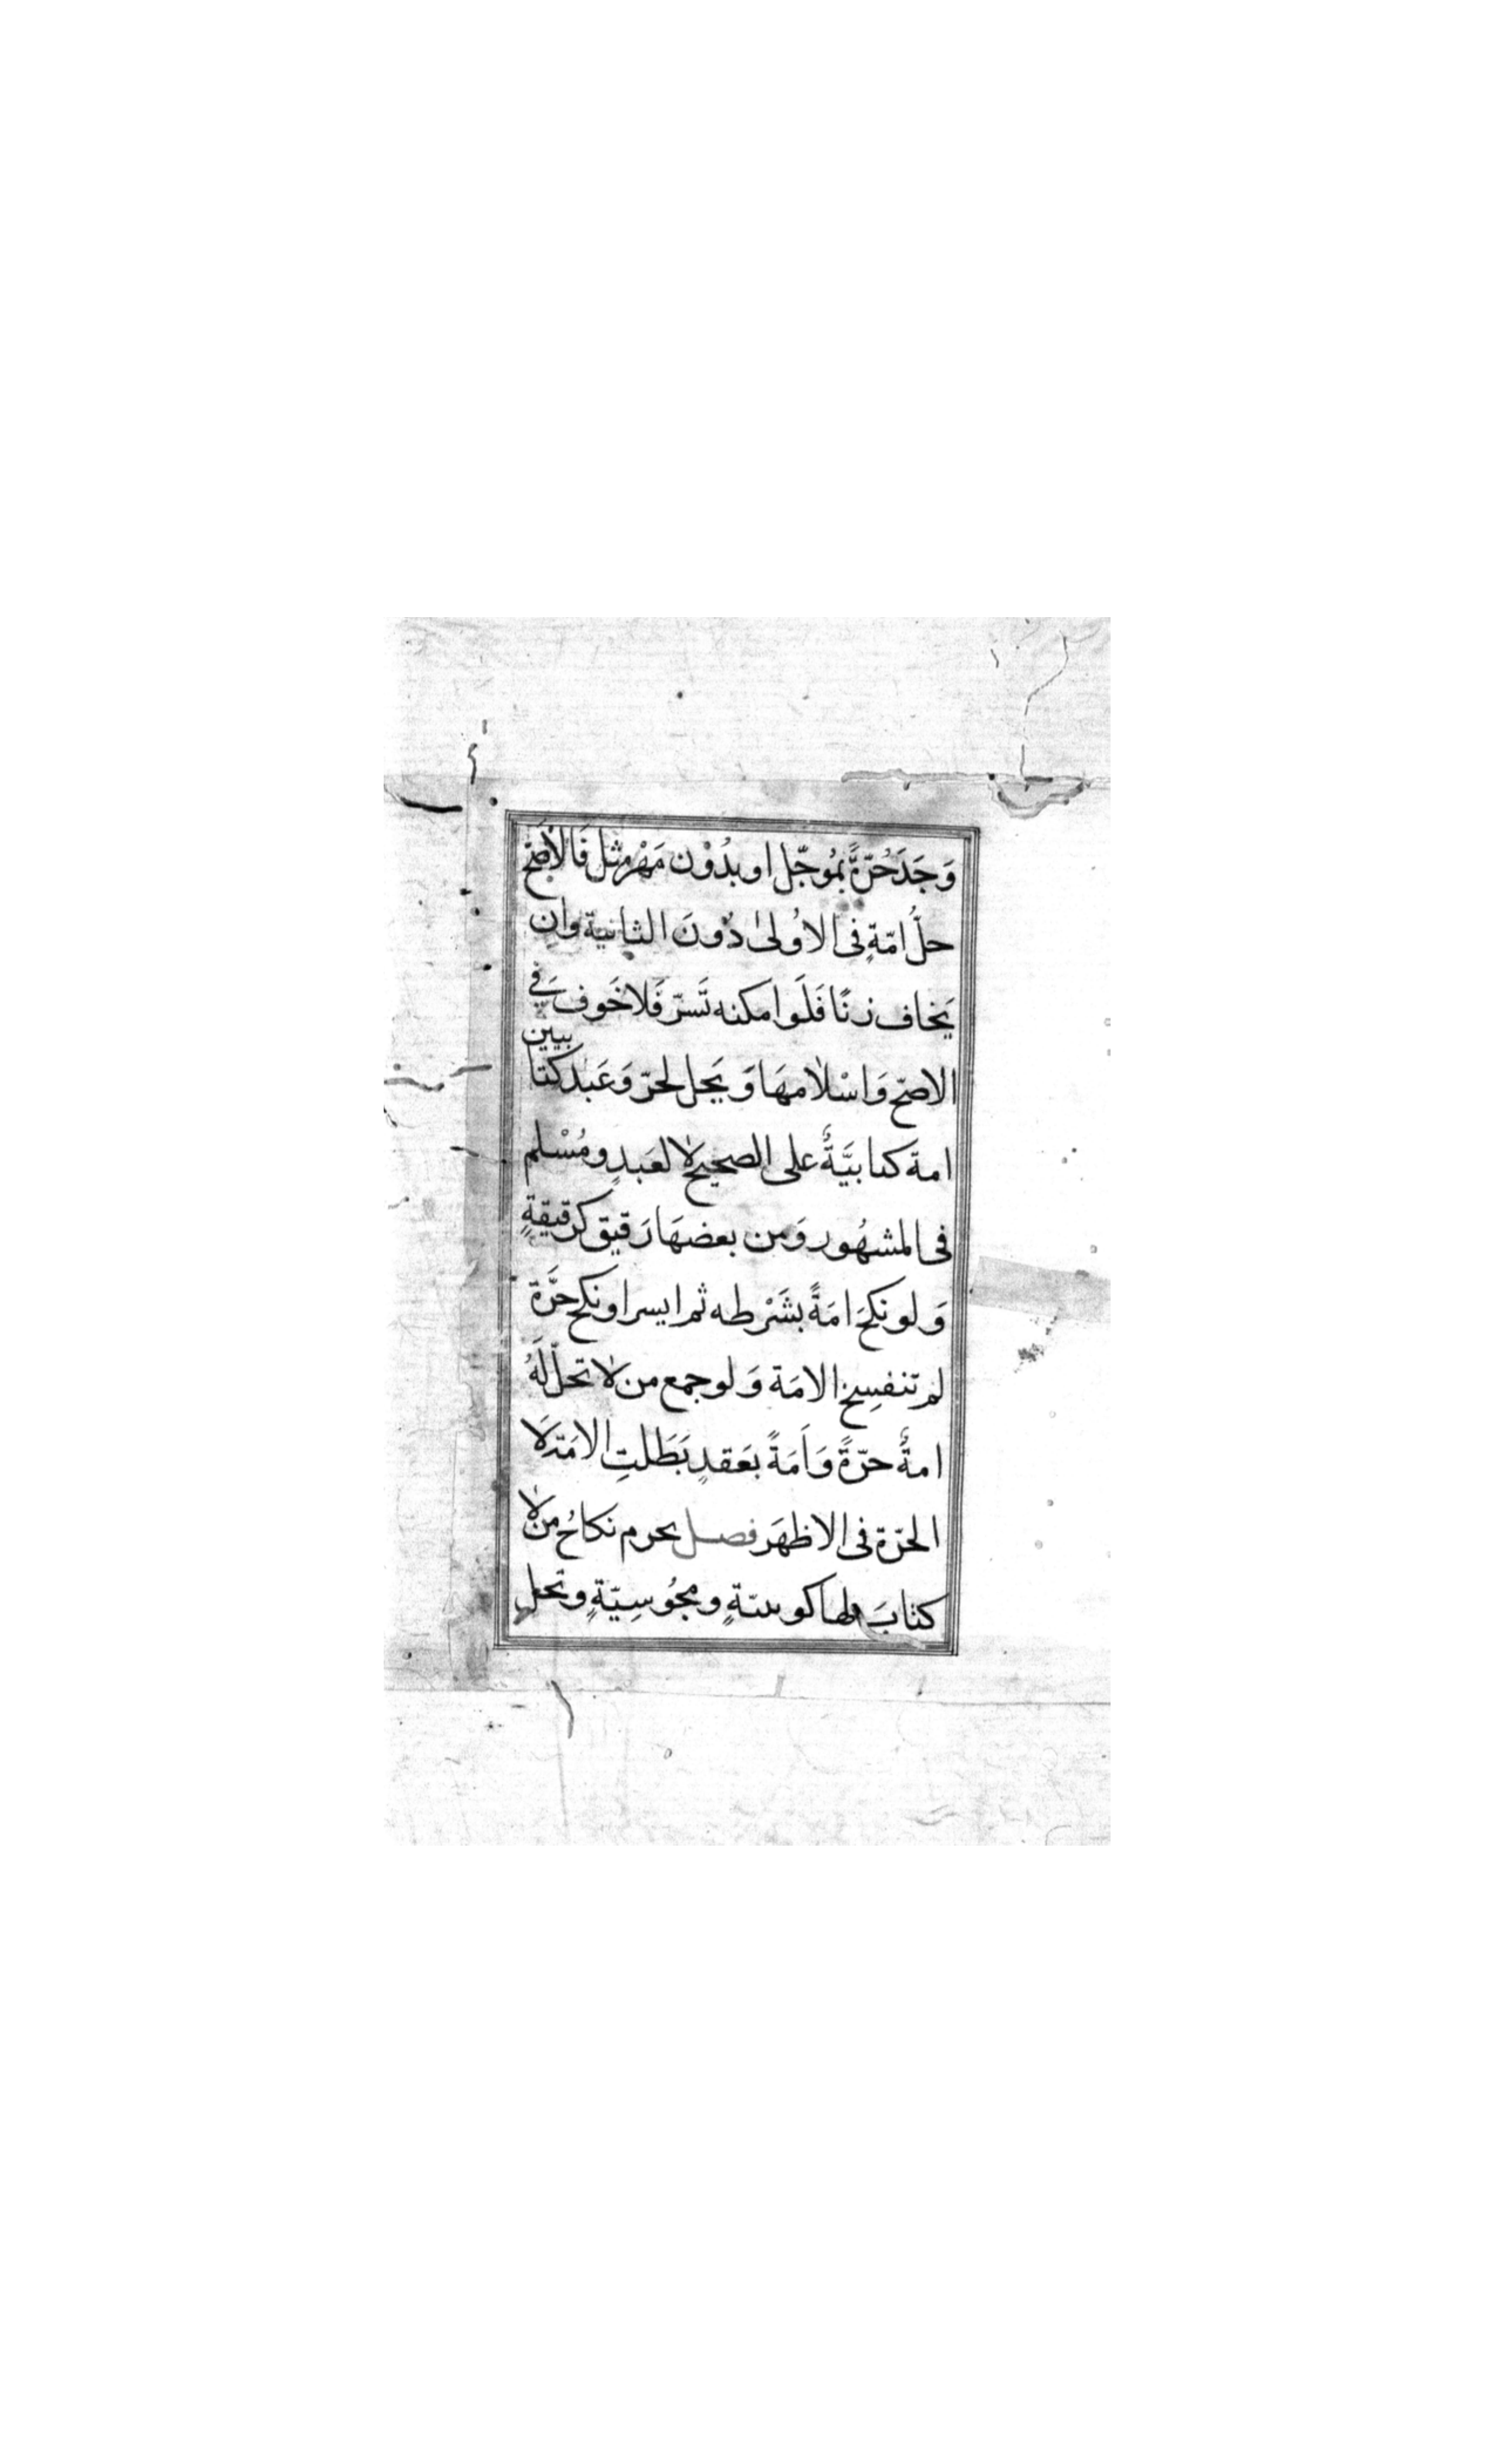 وَجَدَ حُرّةً بمُوجّل اوبدُوْن مَهْرمثل فَالأصَحّ
حلُّ امّةٍ فى الاُولىٰ دُونَ الثانيةِ وان
يَخاف زنًا فَلَوامكنه تَسرّ فَلا خَوف فِي
الاصّح وَاسْلامهَا وَيَحل لحرّ وَعَبْد كتابيين
امة كتابيَّةٌ على الصحيح لا لعَبدٍ ومُسْلم
فى المشهُور وَمن بعضهَا رَقيق كرقيقةٍ
وَلو نكحَ امَةً بشَرْطه ثم ايسر اونكح حرَّة
لم تنفسِخ الامَة وَلو جمع من لا تحلّ لَهُ
امةٌ حرّةً وَاَمَةً بعَقدٍ بَطَلتِ الامَة لَا
الحرّة فى الاظهَر فصل يحرم نكاحُ من لا
كتابَ لها كوثنيّةٍ ومجُوسِيّةٍ وتحل